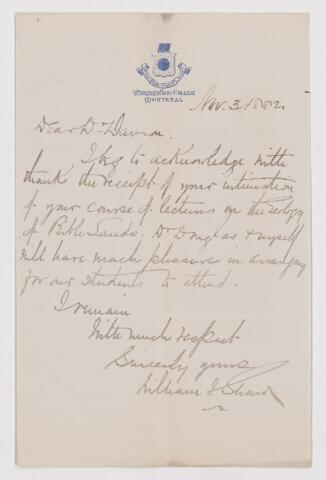 Wesleyan College
Montreal
Nov. 3, 1882
Dear Dr Dawson.
I beg to acknowledge with
thanks the receipt of your intimation
of your course of lectures on the Geology
of Bible Lands. Dr Douglas & myself
will have much pleasure in arranging
for our students to attend.
I remain
With much respect
Sincerely yours
William I. Shaw